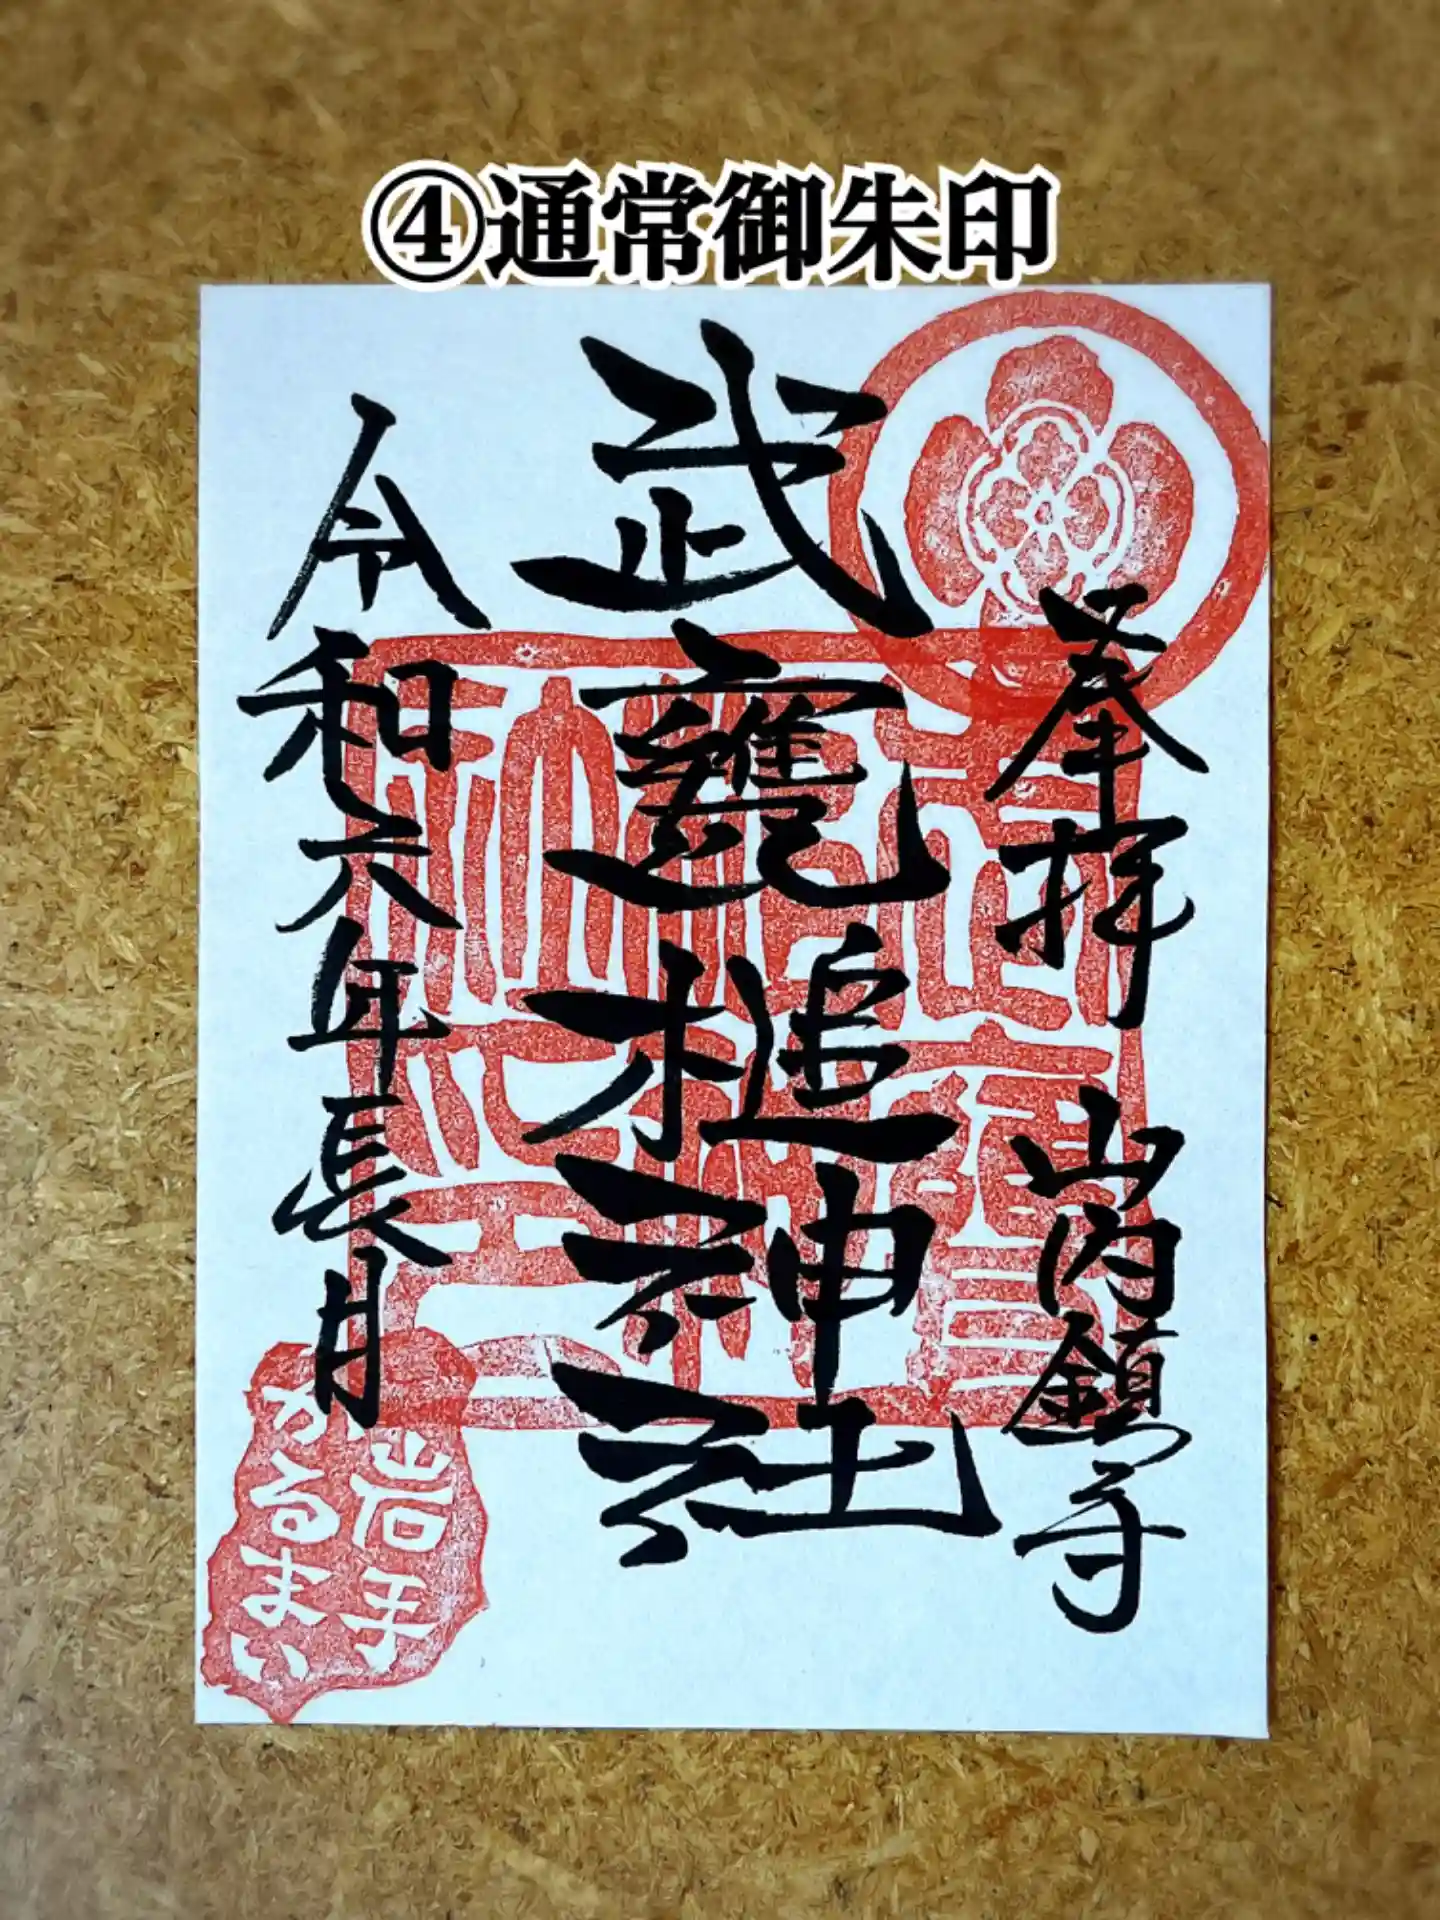 ④通常御朱印
奉拝 山内鎮守
武甕槌神社
令和六年長月
岩手
かるまい